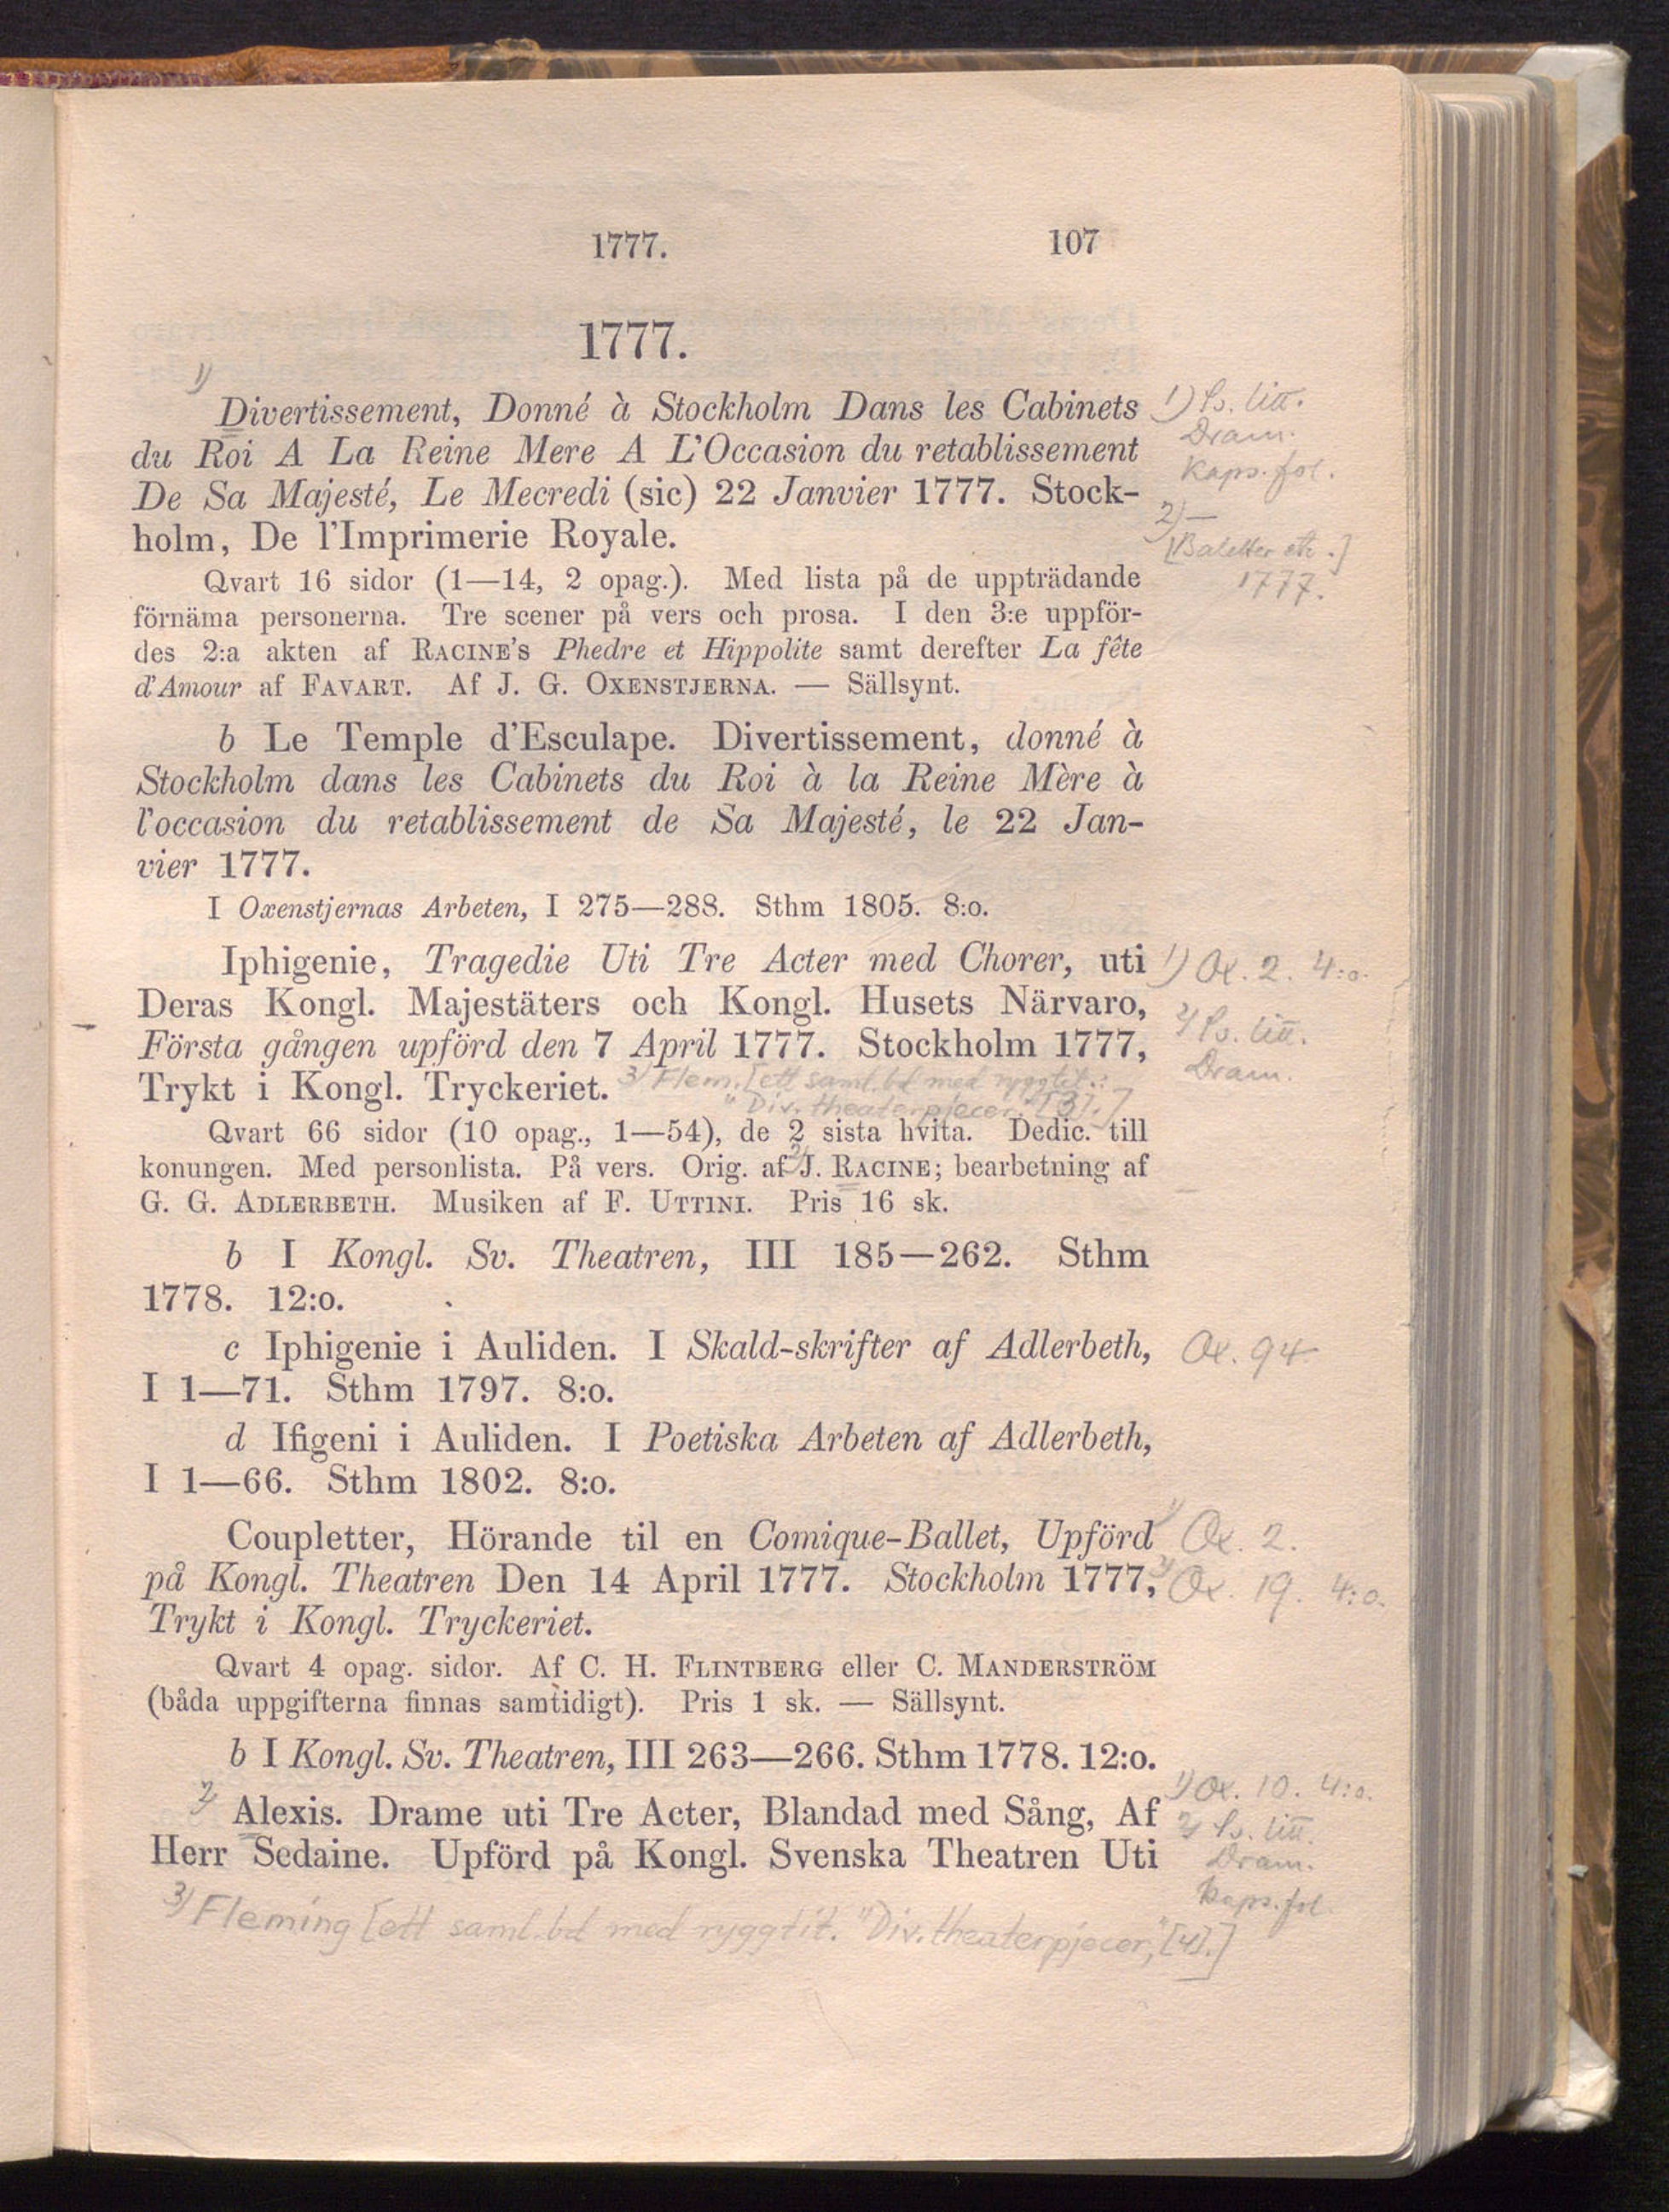 1777. 107
1777.
1)
Divertissement, Donné à Stockholm Dans les Cabinets 1) Sv. litt.
du Roi A La Reine Mere A L'Occasion du retablissement Dram.
De Sa Majesté, Le Mecredi (sic) 22 Janvier 1777. Stock- Kaps. fol.
holm, De l'Imprimerie Royale. 2) —
[Baletter etc.]
1777.
Qvart 16 sidor (1—14, 2 opag.). Med lista på de uppträdande
förnäma personerna. Tre scener på vers och prosa. I den 3:e uppför-
des 2:a akten af RACINE'S Phedre et Hippolite samt derefter La fête
d'Amour af FAVART. Af J. G. OXENSTJERNA. — Sällsynt.
b Le Temple d'Esculape. Divertissement, donné à
Stockholm dans les Cabinets du Roi à la Reine Mère à
l'occasion du retablissement de Sa Majesté, le 22 Jan-
vier 1777.
I Oxenstjernas Arbeten, I 275—288. Sthm 1805. 8:o.
Iphigenie, Tragedie Uti Tre Acter med Chorer, uti 1) Ox. 2. 4:o.
Deras Kongl. Majestäters och Kongl. Husets Närvaro, 2) Sv. litt.
Första gången upförd den 7 April 1777. Stockholm 1777, Dram.
Trykt i Kongl. Tryckeriet. 3) Flem. [ett saml. bd med ryggtit.:
"Div. theaterpjecer." [3].]
Qvart 66 sidor (10 opag., 1—54), de 2 sista hvita. Dedic. till
konungen. Med personlista. På vers. Orig. af J. RACINE; bearbetning af
G. G. ADLERBETH. Musiken af F. UTTINI. Pris 16 sk.
b I Kongl. Sv. Theatren, III 185—262. Sthm
1778. 12:o.
c Iphigenie i Auliden. I Skald-skrifter af Adlerbeth, Ox. 94
I 1—71. Sthm 1797. 8:o.
d Ifigeni i Auliden. I Poetiska Arbeten af Adlerbeth,
I 1—66. Sthm 1802. 8:o.
Coupletter, Hörande til en Comique-Ballet, Upförd 1) Ox. 2.
på Kongl. Theatren Den 14 April 1777. Stockholm 1777, 2) Ox. 19. 4:o.
Trykt i Kongl. Tryckeriet.
Qvart 4 opag. sidor. Af C. H. FLINTBERG eller C. MANDERSTRÖM
(båda uppgifterna finnas samtidigt). Pris 1 sk. — Sällsynt.
b I Kongl. Sv. Theatren, III 263—266. Sthm 1778. 12:o.
2) Alexis. Drame uti Tre Acter, Blandad med Sång, Af 1) Ox. 10. 4:o.
2) Sv. litt.
Herr Sedaine. Upförd på Kongl. Svenska Theatren Uti Dram.
Kaps. fol.
3) Fleming [ett saml. bd med ryggtit. "Div. theaterpjecer," [4].]